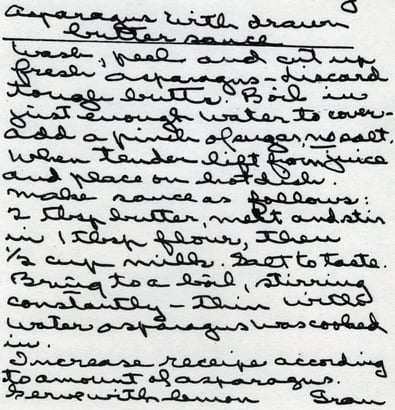 Asparagus with drawn
butter sauce
Wash, peel and cut up
fresh asparagus - discard
tough butts. Boil in
just enough water to cover -
add a pinch of sugar, no salt.
When tender lift from juice
and place on hot dish.
Make sauce as follows:
2 tbsp butter, melt and stir
in 1 tbsp flour, then
1/2 cup milk. Salt to taste.
Bring to a boil, stirring
constantly - thin with
water asparagus was cooked
in.
Increase receipe according
to amount of asparagus.
Serve with lemon